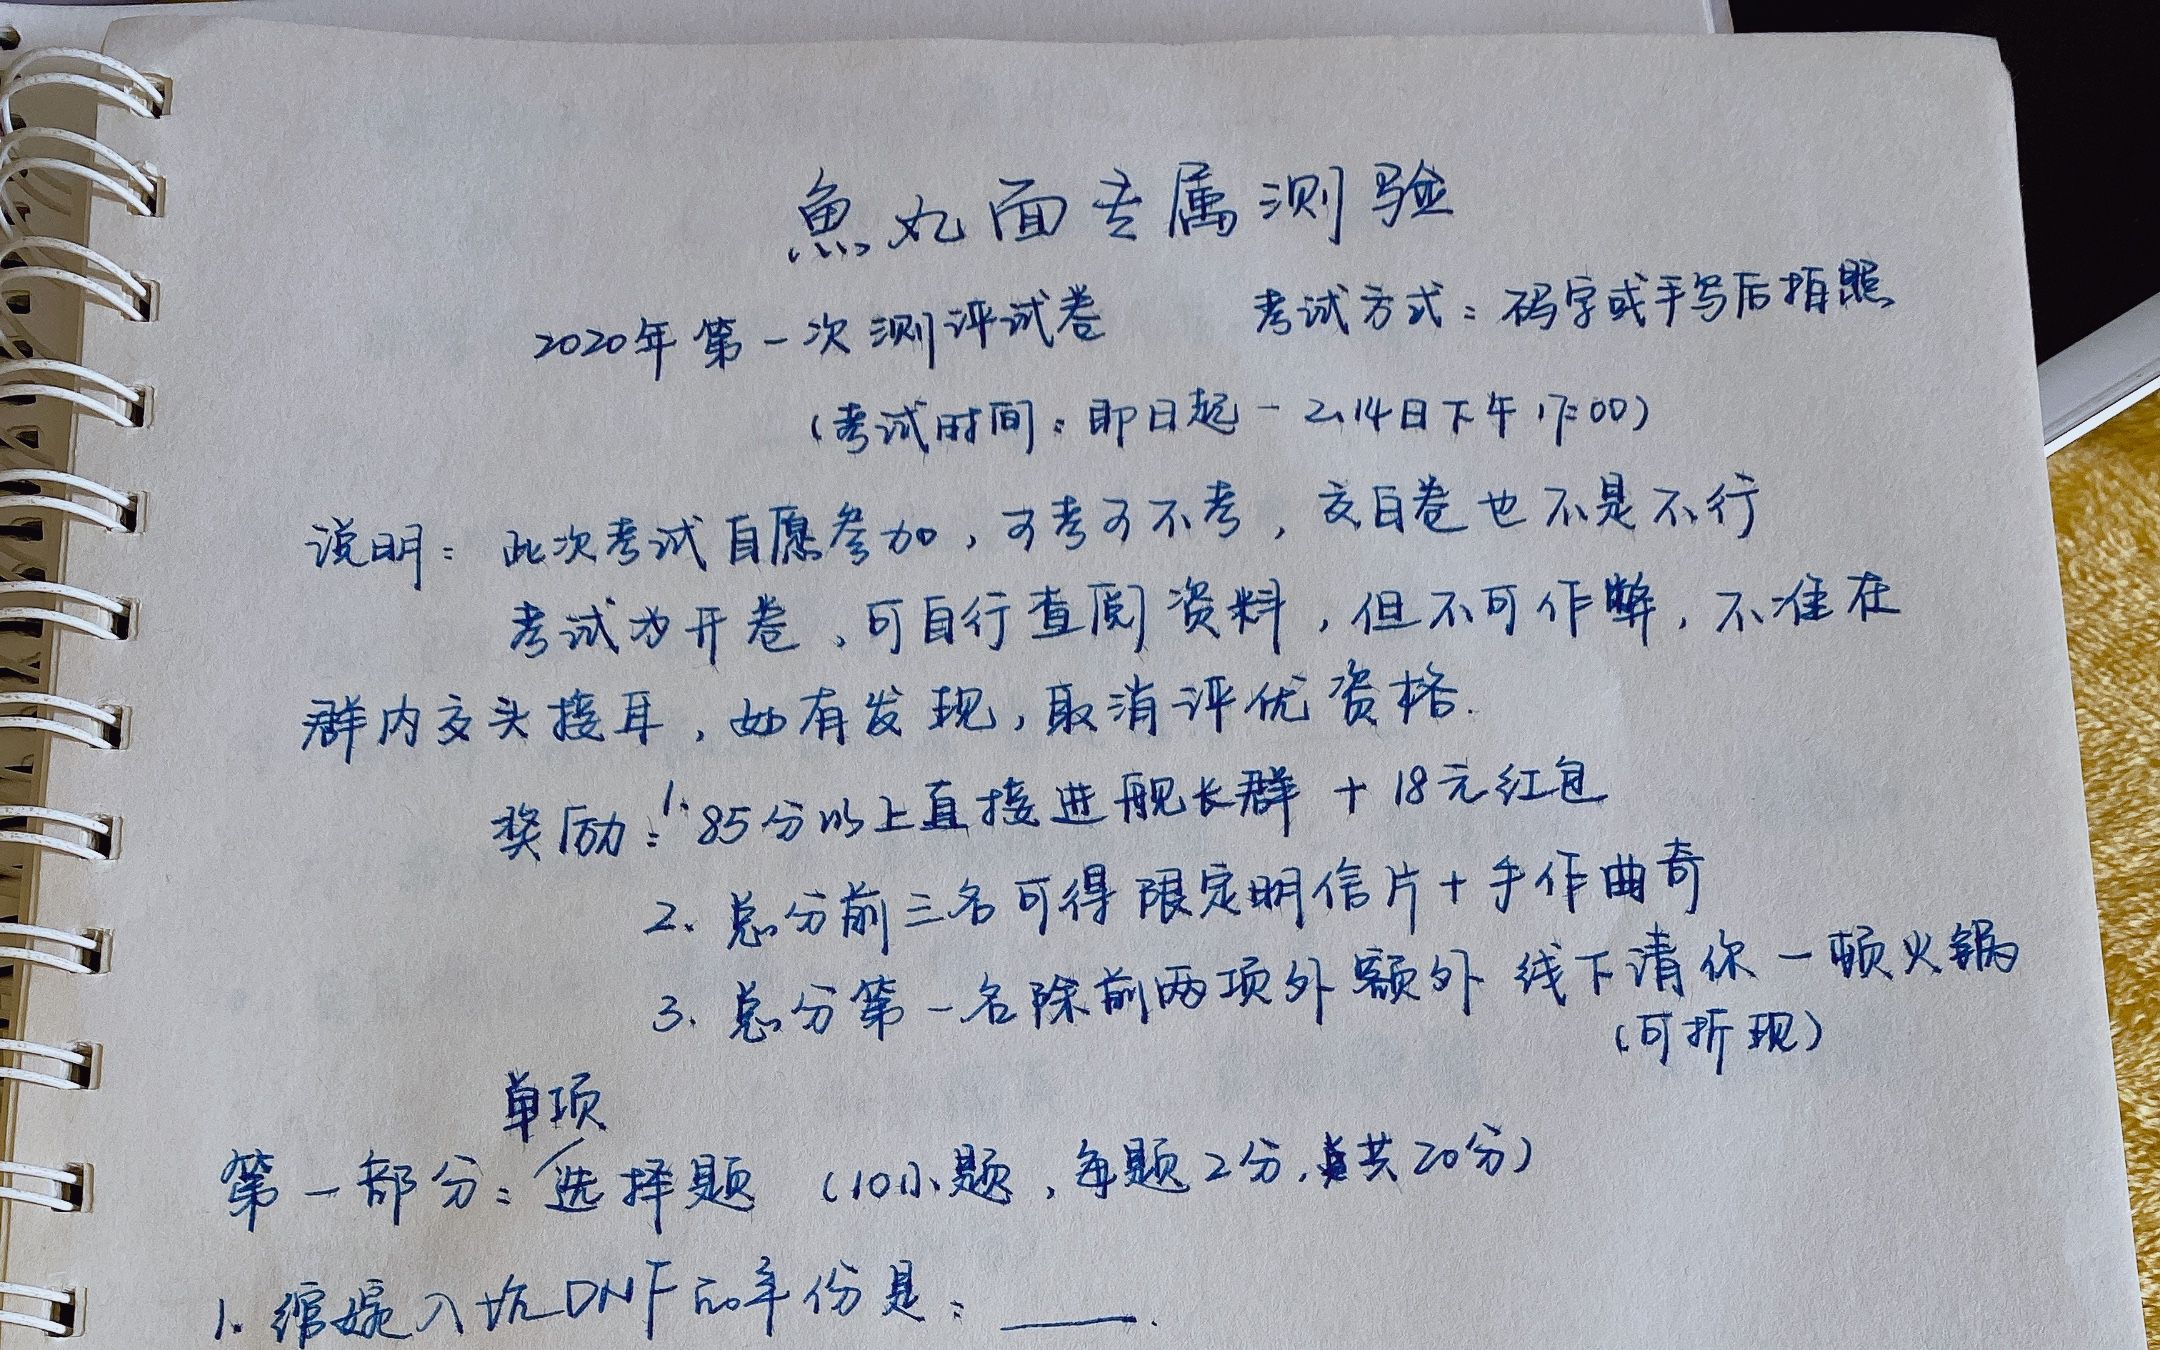 魚丸面专属测验
2020年第一次测评试卷 考试方式：码字或手写后拍照
（考试时间：即日起－2.14日下午17:00）
说明：此次考试自愿参加，可考可不考，交白卷也不是不行
考试为开卷，可自行查阅资料，但不可作弊，不准在
群内交头接耳，如有发现，取消评优资格.
奖励：1. 85分以上直接进舰长群 + 18元红包
2. 总分前三名可得限定明信片+手作曲奇
3. 总分第一名除前两项外额外 线下请你一顿火锅
（可折现）
单项
第一部分：选择题 （10小题，每题2分，共20分）
1. 绾婉入坑DNF的年份是：____.